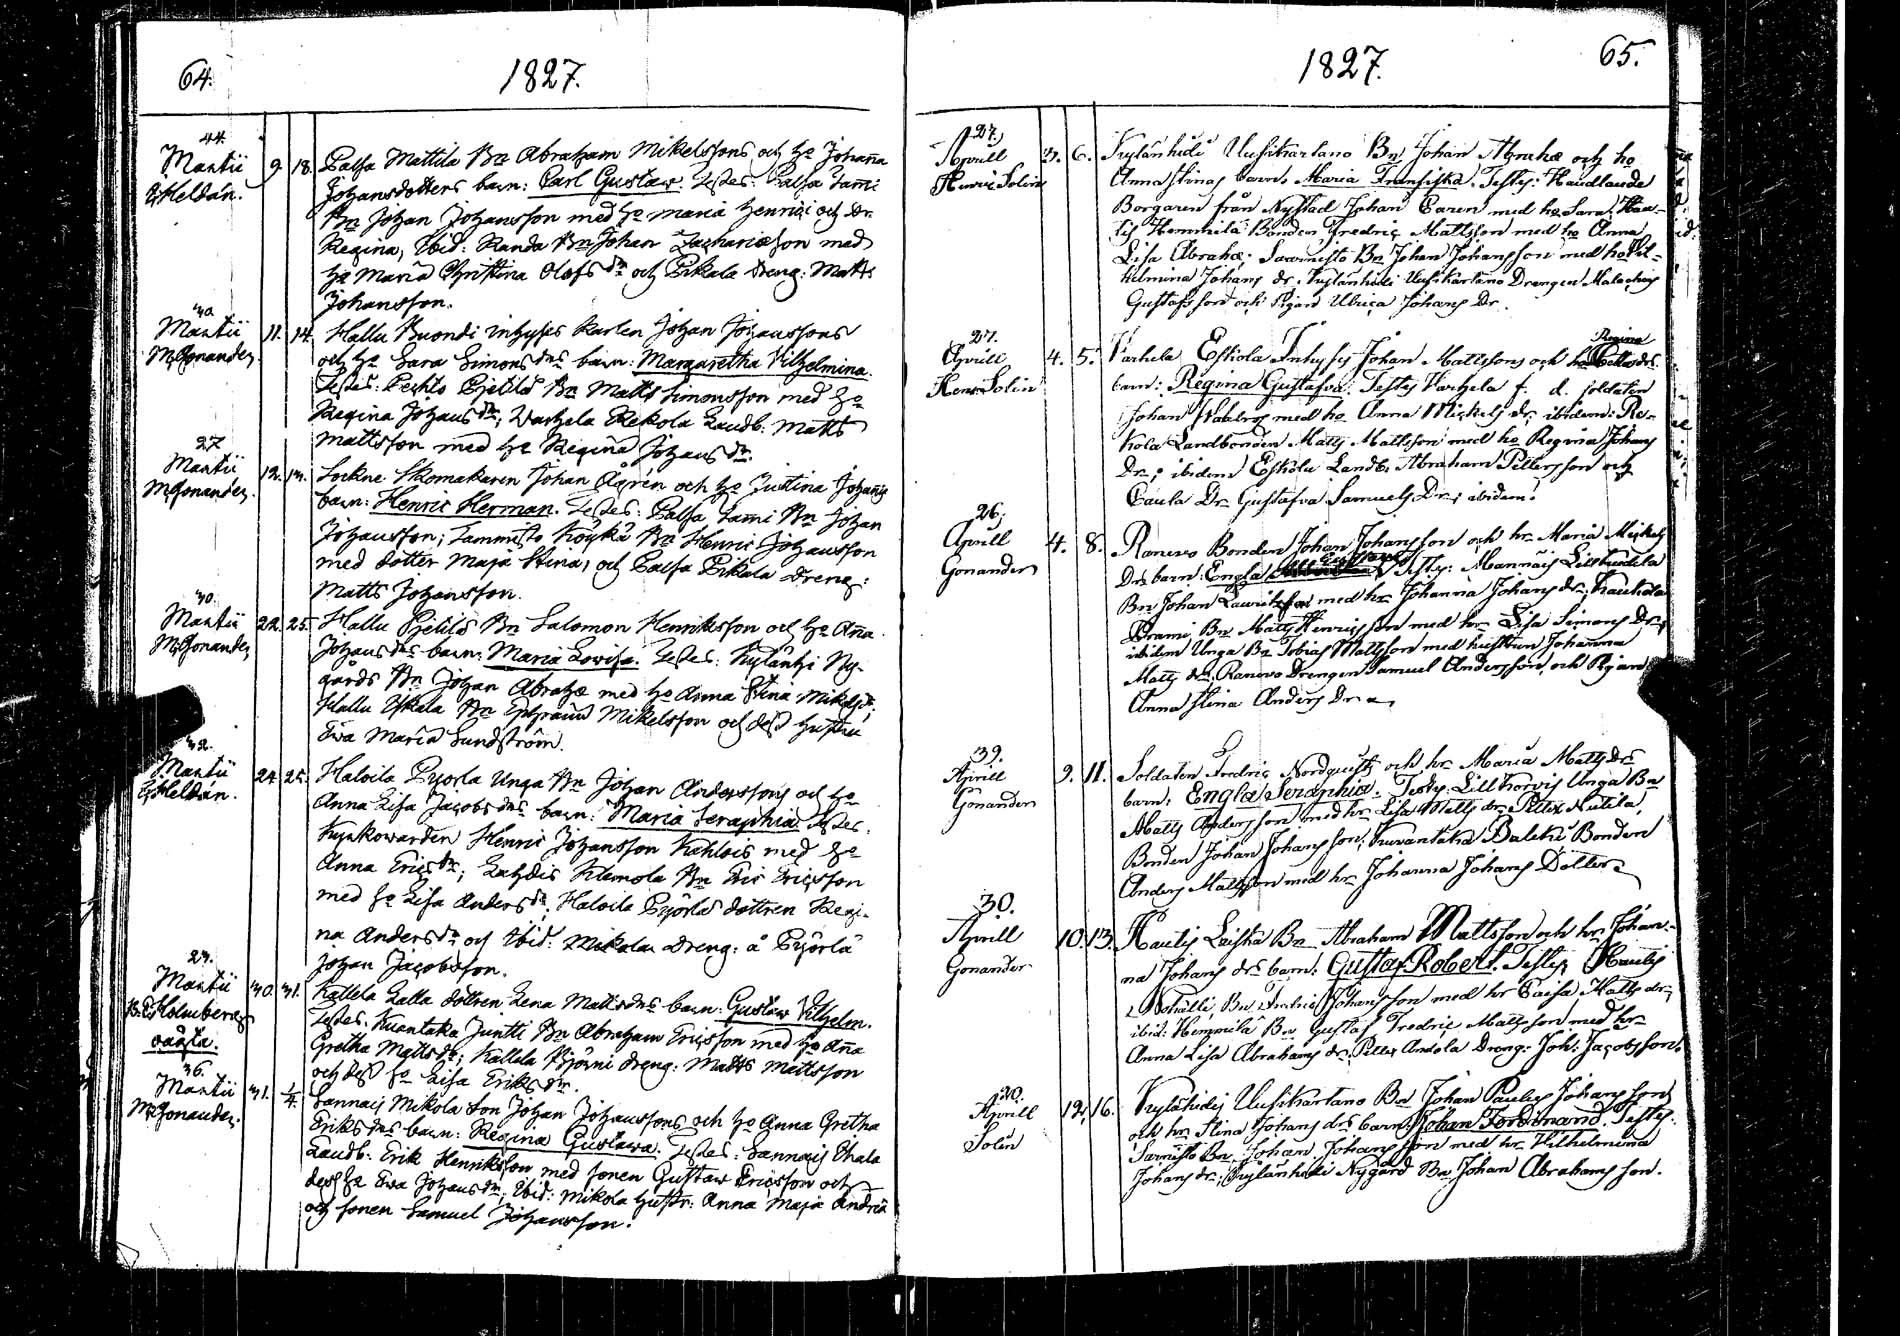 64.
1827.
44.
Martii 9. 18. Palsa Mattila Bn Abraham Mikelssons och ho Johanna
Heldán. Johansdotters barn: Carl Gustaw. Testes: Palsa Tami
Bn Johan Johansson med ho Maria Henrici och Dr
Regina, Ibid: Randa Bn Johan Zachariæson med
ho Maria Christina Olofs dr och Pikala Dreng: Matts
Johansson.
30.
Martii 11. 14. Hallu Buondi Inhyses karlen Johan Johanssons
M. Gonander. och ho Sara Simons drs barn: Margaretha Vilhelmina.
Testes: Pietilä Bn Matts Simonsson med ho
Regina Johans dr; Warhela Rekola Landb: Matts
Mattsson med ho Regina Johans dr.
27.
Martii 12. 13. Sockne Skomakaren Johan Ågrén och ho Justina Johans
M. Gonander. barn: Henric Herman. Testes: Palsa Tami Bn Johan
Johansson; Tammisto Köykä Bn Henric Johansson
med dotter Maja Stina, och Palsa Pikala Dreng:
Matts Johansson.
30.
Martii 22. 25. Hallu Pietilä Bn Salomon Henriksson och ho Aña
M. Gonander. Johans drs barn: Maria Lovisa. Testes: Kylänhi Ny-
gårds Bn Johan Abrahæ med ho Anna Stina Mikelsdr;
Hallu Yskala Bn Ephraim Mikelsson och dess hustru
Ewa Maria Sundström.
32.
Martii 24. 25. Haloila Pyörla Unga Bn Johan Anderssons och ho
Heldán. Anna Lisa Jacobs drs barn: Maria Seraphia. Testes:
Kyrkowarden Henric Johansson Kahlois med ho
Anna Erics dr; Lahdis Klemola Bn Eric Ericsson
med ho Lisa Anders dr; Haloila Pyörlä dottren Regi-
na Anders dr och Ibid: Mikola Dreng: å Pyörlä
Johan Jacobsson.
23.
Martii 30. 31. Kallela Lalla dottren Lena Matts drs barn: Gustaw Vilhelm.
Holmberg Testes: Kuantaka Juntti Bn Abraham Ericsson med ho Aña
oäkta. Gretha Matts dr; Kallela Björni Dreng: Matts Mattsson
och dess ho Lisa Eriks dr.
36.
Martii 31. 1/4. Sannais Mikola Son Johan Johanssons och ho Anna Gretha
M. Gonander. Eriks drs barn: Regina Gustawa. Testes: Sannais Uhala
Landb: Erik Henriksson med sonen Gustaw Ericsson och
dess ho Ewa Johans dr; Ibid: Mikola hustr: Anna Maja Andreæ
och sonen Samuel Johansson.
1827.
65.
27.
Aprill 3. 6. Kylänhidi Uusikartano Bn Johan Abrahæ och ho
Henric Solin Anna Stinas barn. Maria Fransiska. Testes: Handlande
Borgaren från Nystad Johan Caren med ho Sara; Hau-
tis Hemmilä Bonden Fredric Mattsson med ho Anna
Lisa Abrahæ. Sarmisto Bn Johan Johansson med ho Vil-
helmina Johans dr. Kylänhidi Uusikartano Drengen Malachias
Gustafsson och Pigan Ulrica Johans Dr.
27.
Aprill 4. 5. Varhela Eskola Inhyses Johan Mattssons och ho Regina
Henr. Solin barn: Regina Gustafva. Testes Varhela f. d. soldaten
Johan med ho Anna Mickels dr ibidem: Re-
kola Landbonden Matts Mattsson med ho Regina Johans
Dr; ibidem Eskola Landb. Abraham Pettersson och
Caula Dr Gustafva Samuels Dr; ibidem.
26.
Aprill 4. 8. Ranevo Bonden Johan Johansson och hr Maria Mickels
Gonander Drs barn: Engla Testes: Mannäis
Bn Johan Lauritzson med hr Johanna Johans dr; Kaukola
Prami Bn Matts Henricsson med hr Lisa Simons Dr;
ibidem Unga Bn Tobias Mattsson med hustrun Johanna
Matts dr. Ranevo Drengen Samuel Andersson, och Pigan
Anna Stina Anders Dr.
39.
Aprill 9. 11. Soldaten Fredric Nordqvists och hr Maria Matts Drs
Gonander barn: Engla Seraphia. Testes: Unga Bn
Matts Andersson med hr Lisa Matts dr;
Bonden Johan Johansson; Kuvantaka Baleki Bonden
Anders Mattsson med hr Johanna Johans Dotter.
30.
Aprill 10. 13. Hautis Leiska Bn Abraham Mattsson och hr Johan-
Gonander na Johans drs barn: Gustaf Robert. Testes Hautis
Bn Fredric Johansson med hr Caisa Matts dr;
ibid: Hemmilä Bn Gustaf Fredric Mattsson med hr
Anna Lisa Abrahams dr; Andola Dreng: Joh: Jacobsson.
20.
Aprill 12. 16. Kylähidis Uusikartano Bn Johan Paulus Johansson
Solin och hr Stina Johans drs barn: Johan Ferdinand. Testes:
Sarmisto Bn Johan Johansson med hr Vilhelmina
Johans dr; Kylänhidi Nygård Bn Johan Abrahamsson.